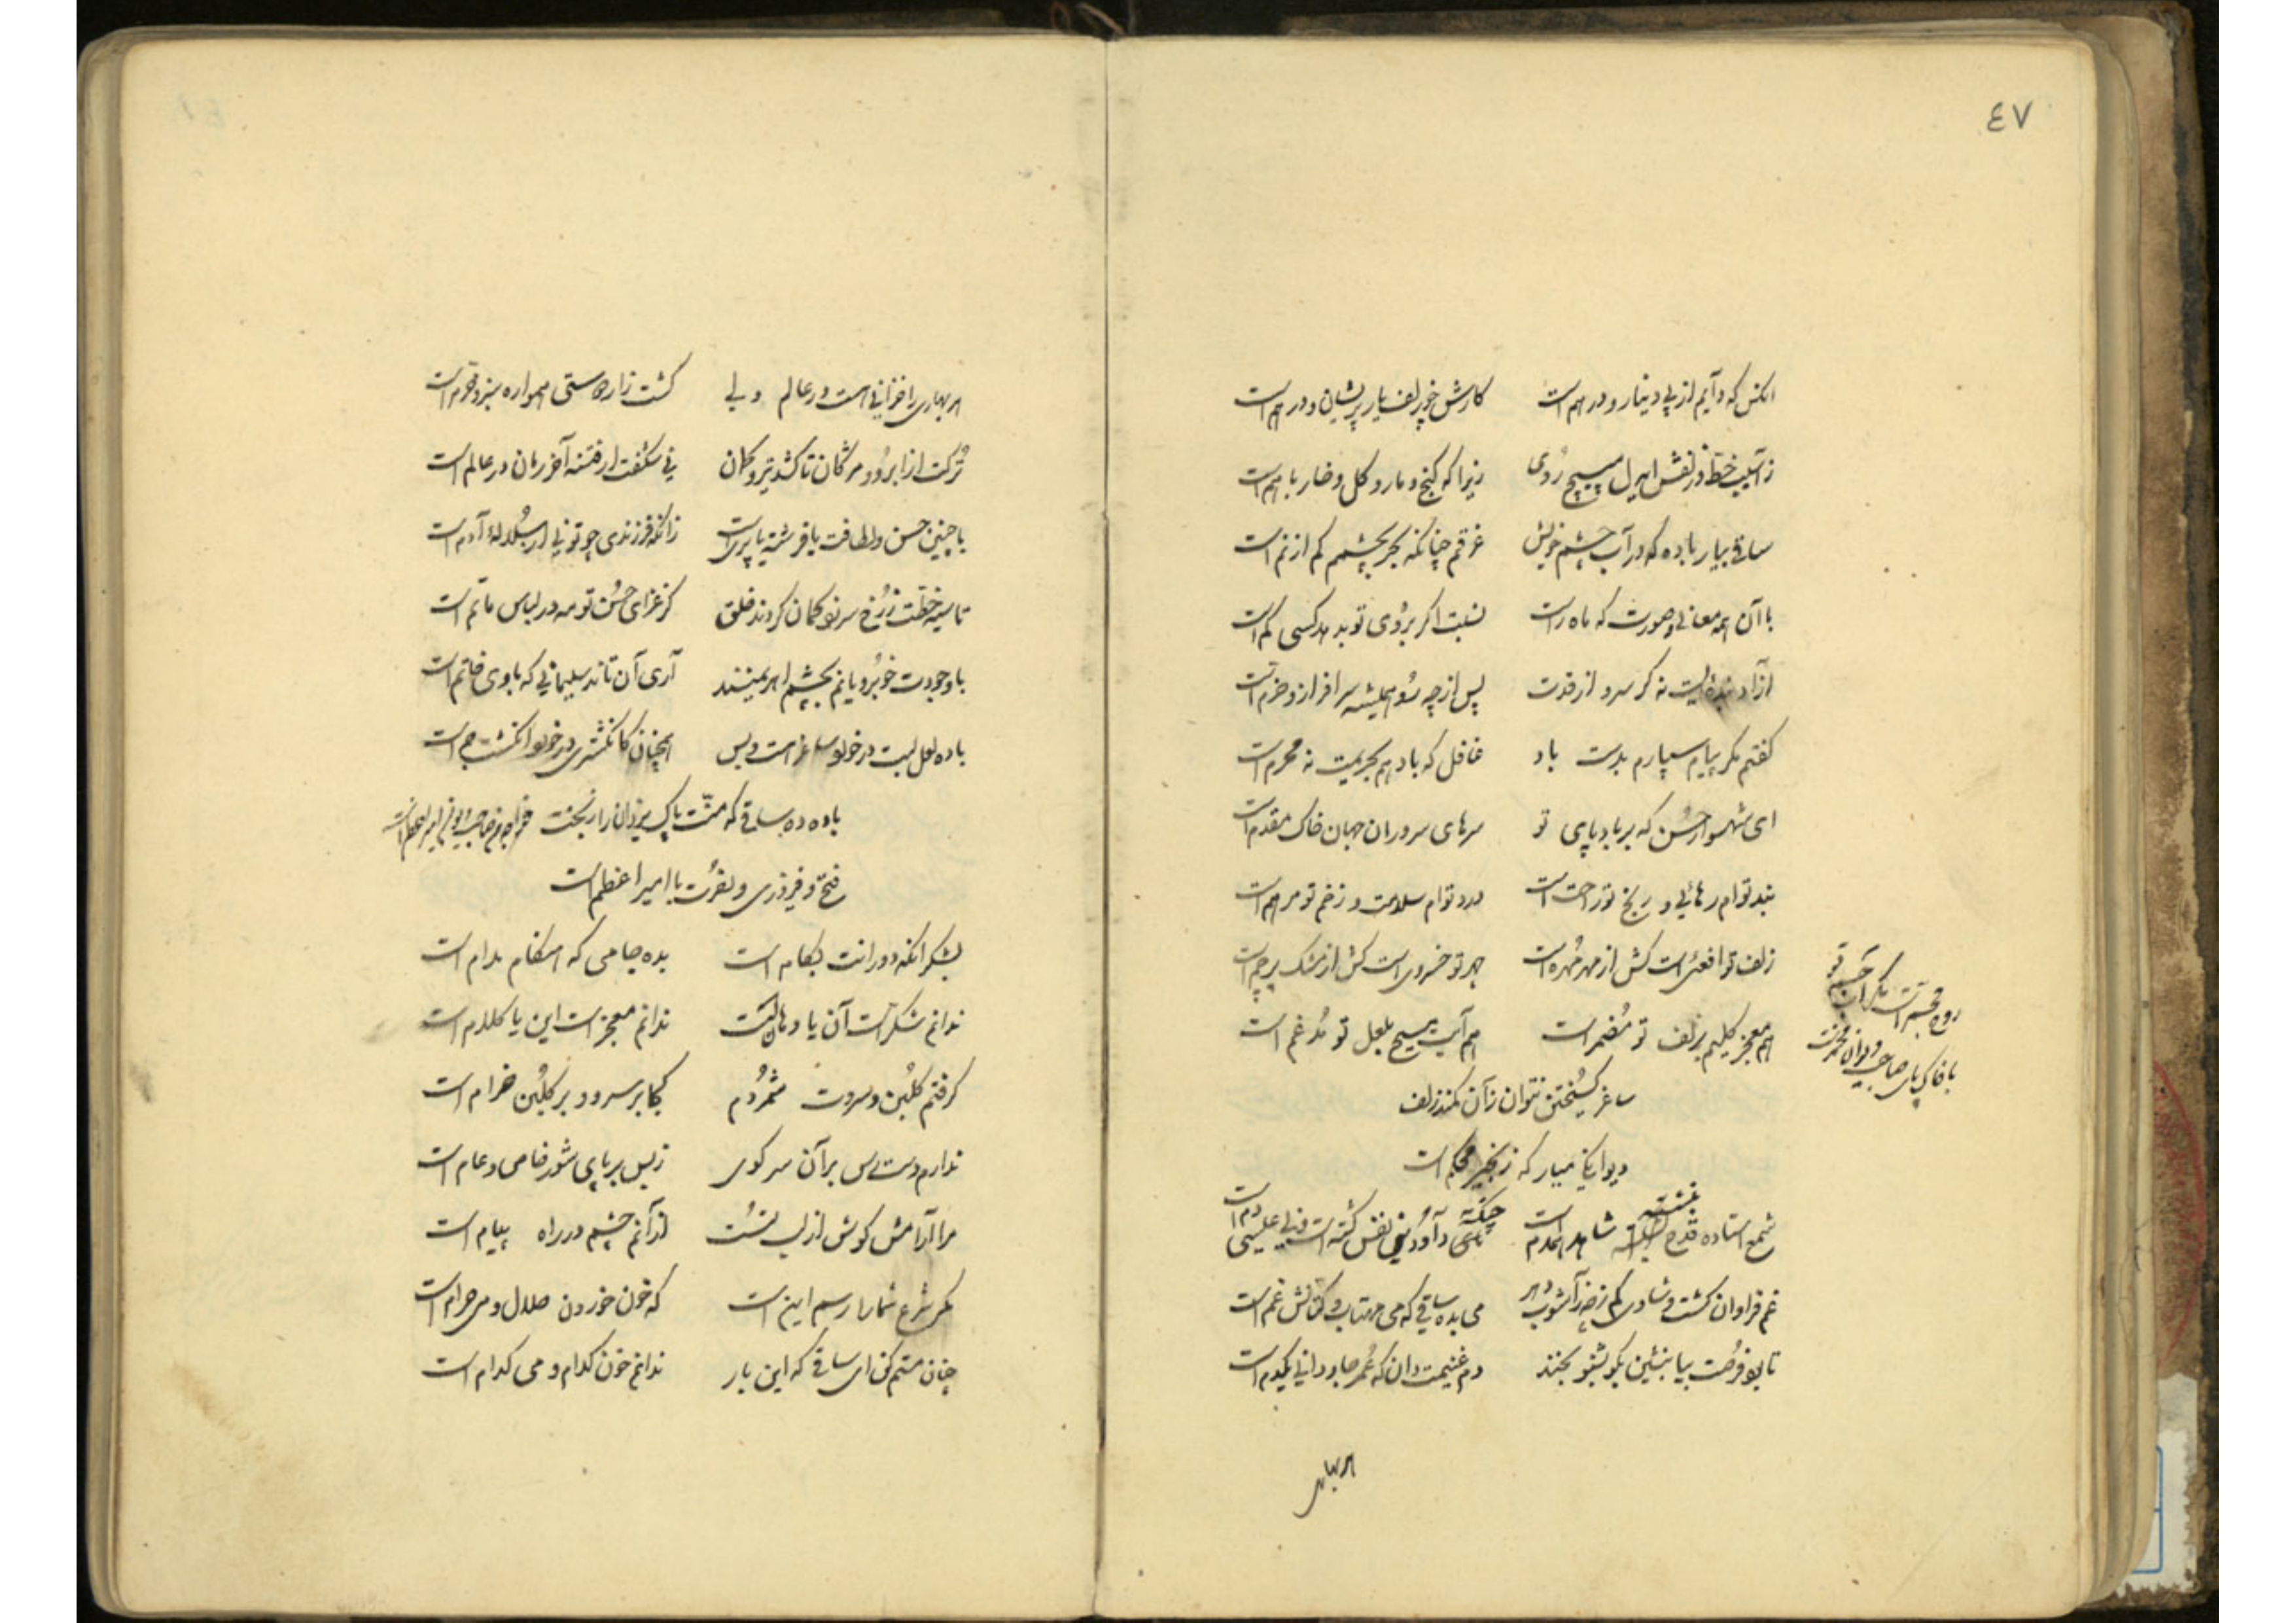 ٤٧
انکس که دایم از پی دینار و درهم است کارش چو زلف یار پریشان و درهم است
ز آسیب خط و زلفش ایدل مپیچ روی زیرا که گنج و مار و گل و خار باهم است
ساقی بیار باده که در آب چشم خویش غرقم چنانکه بحر بچشمم کم از نم است
با آن همه معانی و صورت که ماه راست نسبت اگر بروی تو بدهد کسی کم است
آزاد بنده ایست نه گر سرو از قدت پس از چه رو همیشه سرافراز و خرم است
گفتم مگر پیام سپارم بدست باد غافل که باد هم بحریمت نه محرم است
ای شهسوار حسن که بر بادپای تو سرهای سروران جهان خاک مقدم است
بند توام رهائی و رنج تو راحت است درد توام سلامت و زخم تو مرهم است
زلف تو افعی است کش از مهر مهره است چهر تو خسروی است کش از مشک پرچم است
هم معجز کلیم بزلف تو مضمر است هم آیت مسیح بلعل تو مدغم است
روح مجسم است مگر آن جسم تو
با خاک پای صاحب دیوان
ساغر گسیختن نتوان زآن کمند زلف
دیوانه میار که زنجیر محکم است
شمع استاده قدح بنشسته شاهد همدم است چنگ داود نفس گشته است و نی عیسی دم است
غم فراوان گشت و شادی کم ز آشوب دهر می بده ساقی که می مهتاب و کتانش غم است
تا بود فرصت بیا بنشین بگو بشنو بخند دم غنیمت دان که عمر جاودانی یکدم است
هر بهاری
هر بهاری را خزانی هست در عالم ولی کشت زار حسنتی همواره سبز و خرم است
ترکت از ابرو و مژگان تا کشد تیر و کمان نی شگفت ار فتنه آخر زمان در عالم است
با چنین حسن و لطافت یا فرشته یا پری است زانکه فرزندی چو تو نی از سلاله آدم است
تا سیه خطت ز رخ سر نو گمان کردند خلق کز عزای حسن تو مه در لباس ماتم است
با وجودت خوبرویانم بچشم اهریمنند آری آن تاند سلیمانی که با وی خاتم است
باده لعل لبت در خورد ساغر است و بس همچنان کانگشتری در خورد انگشت جم است
باده ده ساقی که منت پاک یزدان را بخت
فتح و فیروزی و نصرت با امیر اعظم است
بشکر انکه دورانت بکام است بده جامی که هنگام مدام است
ندانم شکرست آن یا دهانت ندانم معجز است این یا کلام است
گرفتم گلبن و سروت شمردم کجا بر سرو و بر گلبن خرام است
ندارم دسترس بر آن سر کوی ز بس بر پای شور خاص و عام است
مرا آرامش گوش از لب تست از آنم چشم در راه پیام است
مگر شرع شما را رسم این است که خون خوردن حلال و می حرام است
چنان مستم کن ای ساقی که این بار ندانم خون کدام و می کدام است